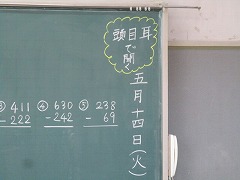 頭目耳
で聞く
五月十四日(火)
③ 411
- 222
④ 630
- 242
⑤ 238
- 69